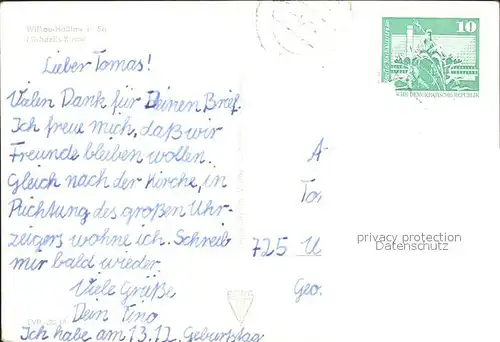 Wilkau-Haßlau
Michaelis-Kirche
10
DEUTSCHE DEMOKRATISCHE REPUBLIK
Lieber Tomas!
Vielen Dank für Deinen Brief.
Ich freue mich, daß wir
Freunde bleiben wollen.
Gleich nach der Kirche, in
Richtung des großen Uhr-
zeigers wohne ich. Schreib
mir bald wieder.
Viele Grüße
Dein Tino
Ich habe am 13.12. Geburtstag
A
To
725
Geo.
privacy protection
Datenschutz